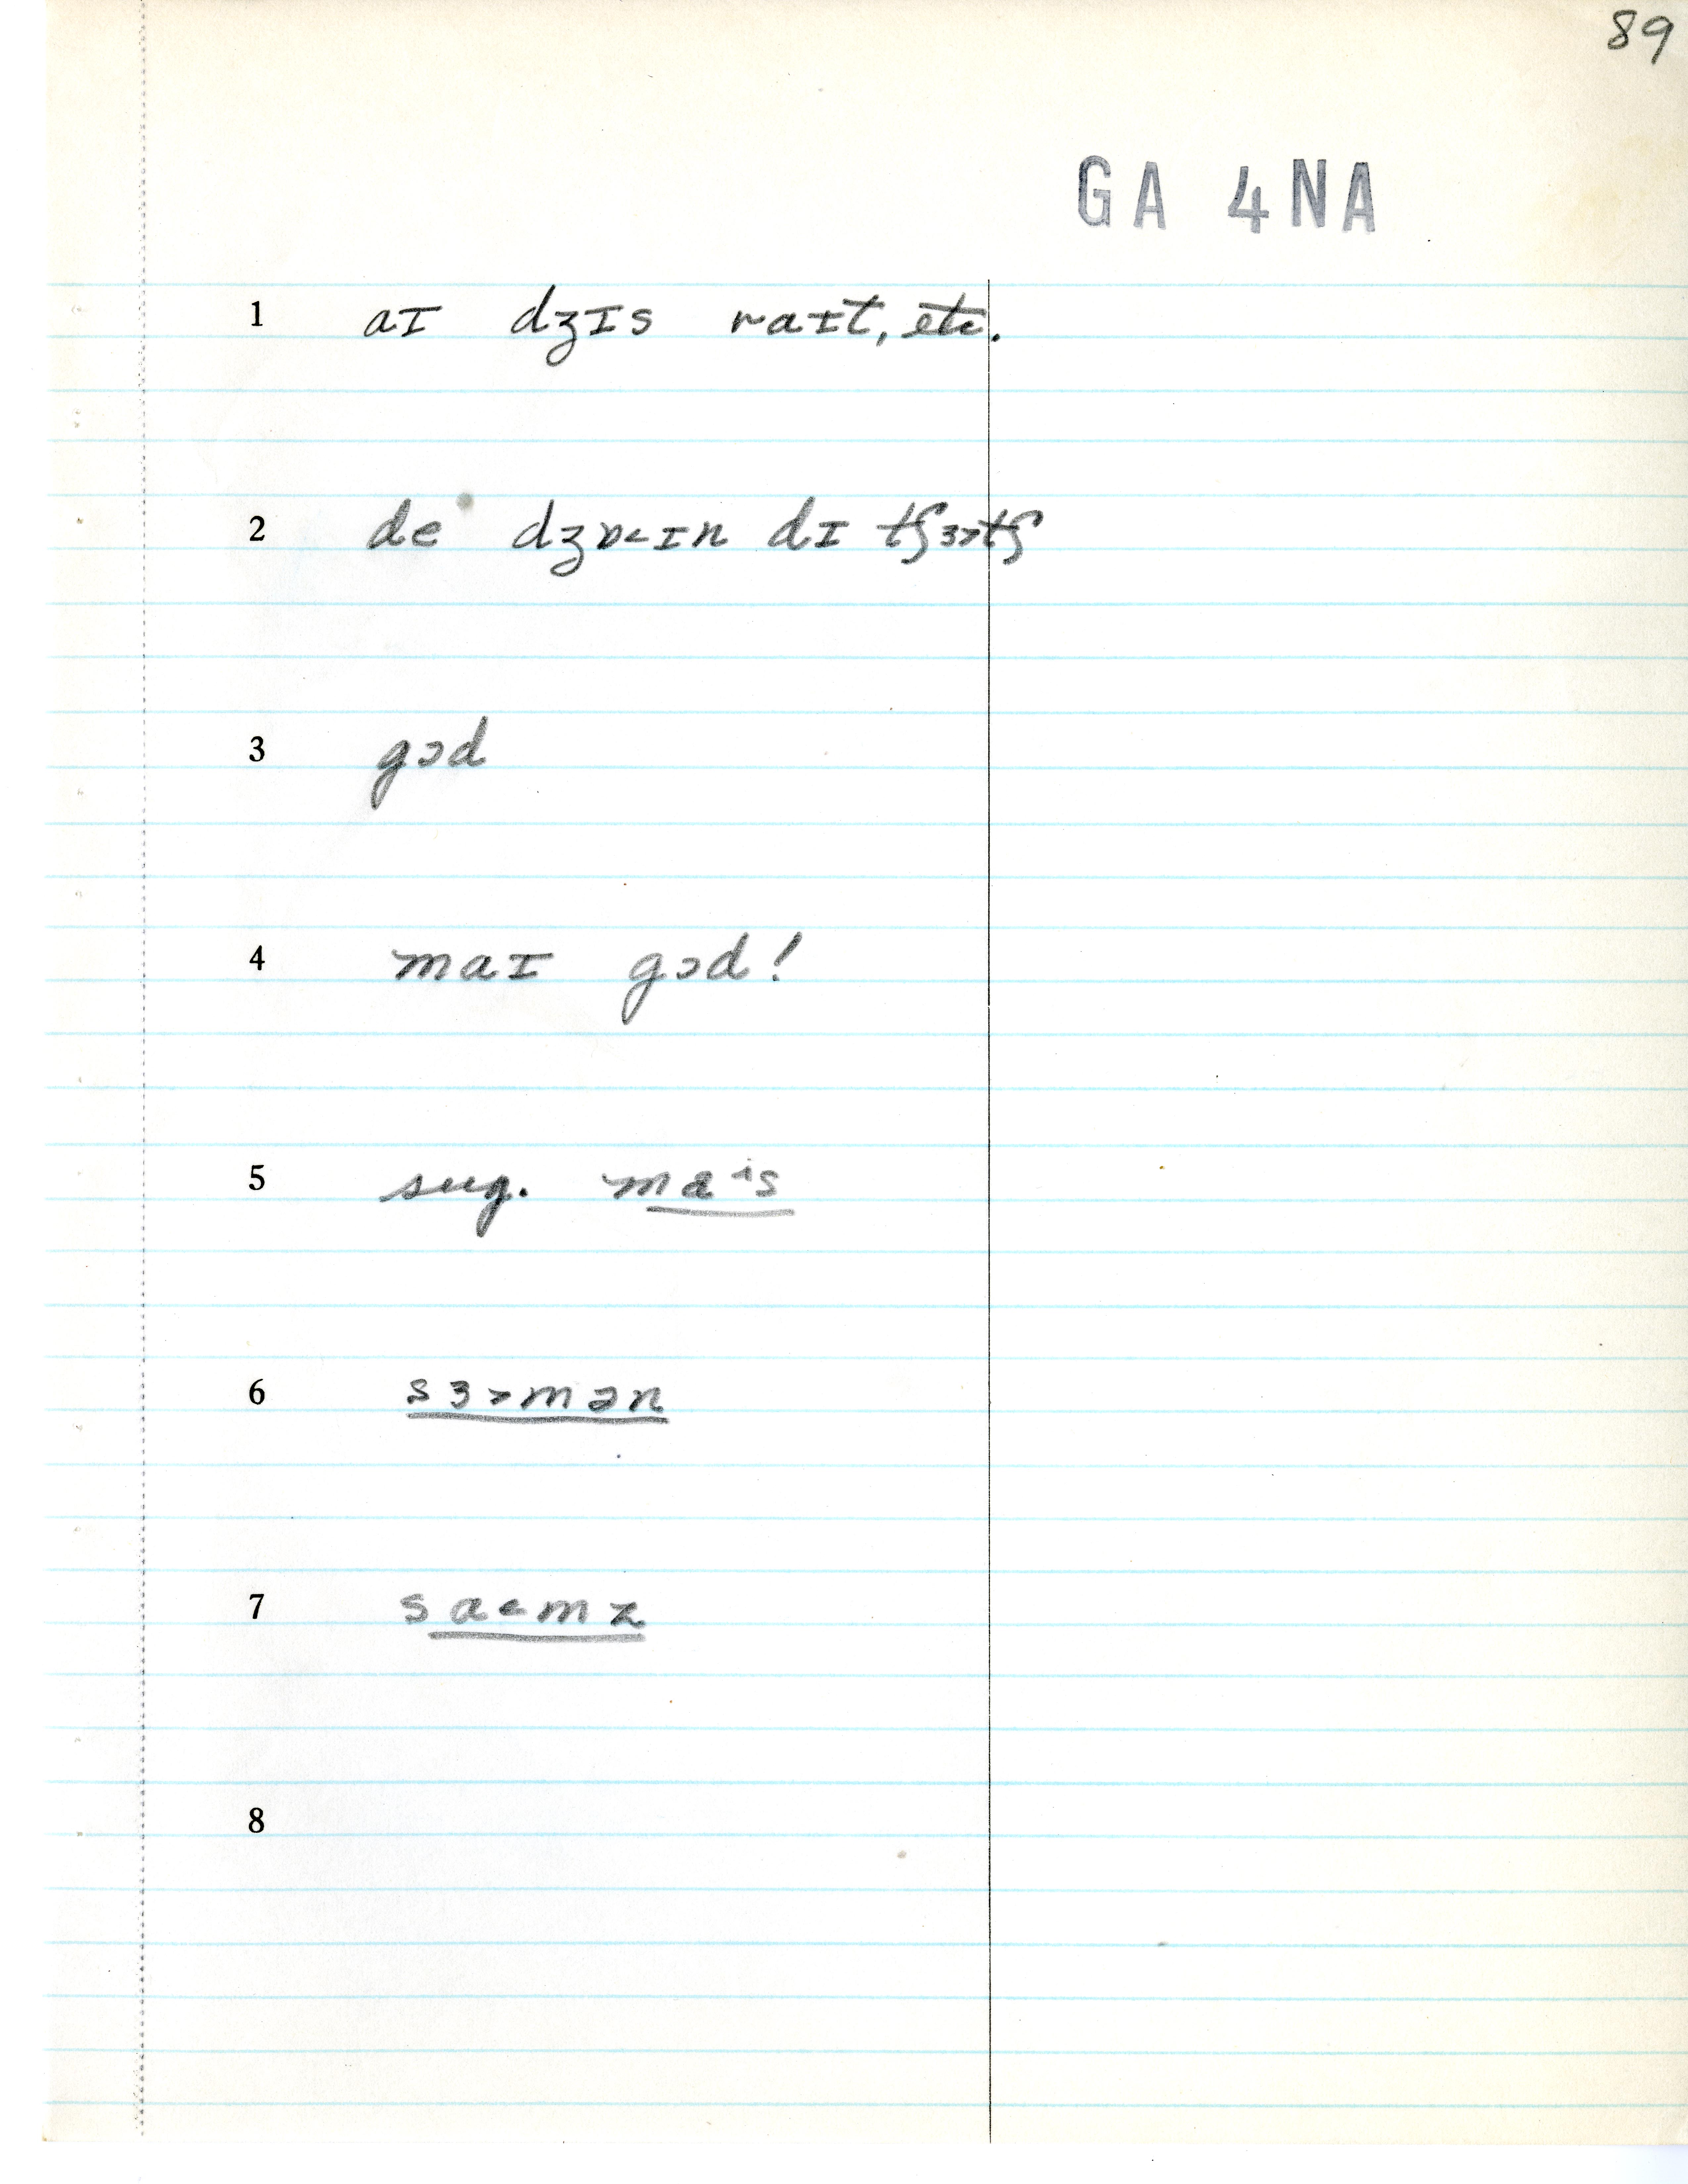 89
GA 4NA
1 aɪ dʒɪs raɪt, etc.
2 de dʒɒ˂ɪn dɪ tʃɜ˃tʃ
3 gɔd
4 maɪ gɔd!
5 sug. maⁱs
6 sɜ˃mən
7 sa˂mz
8